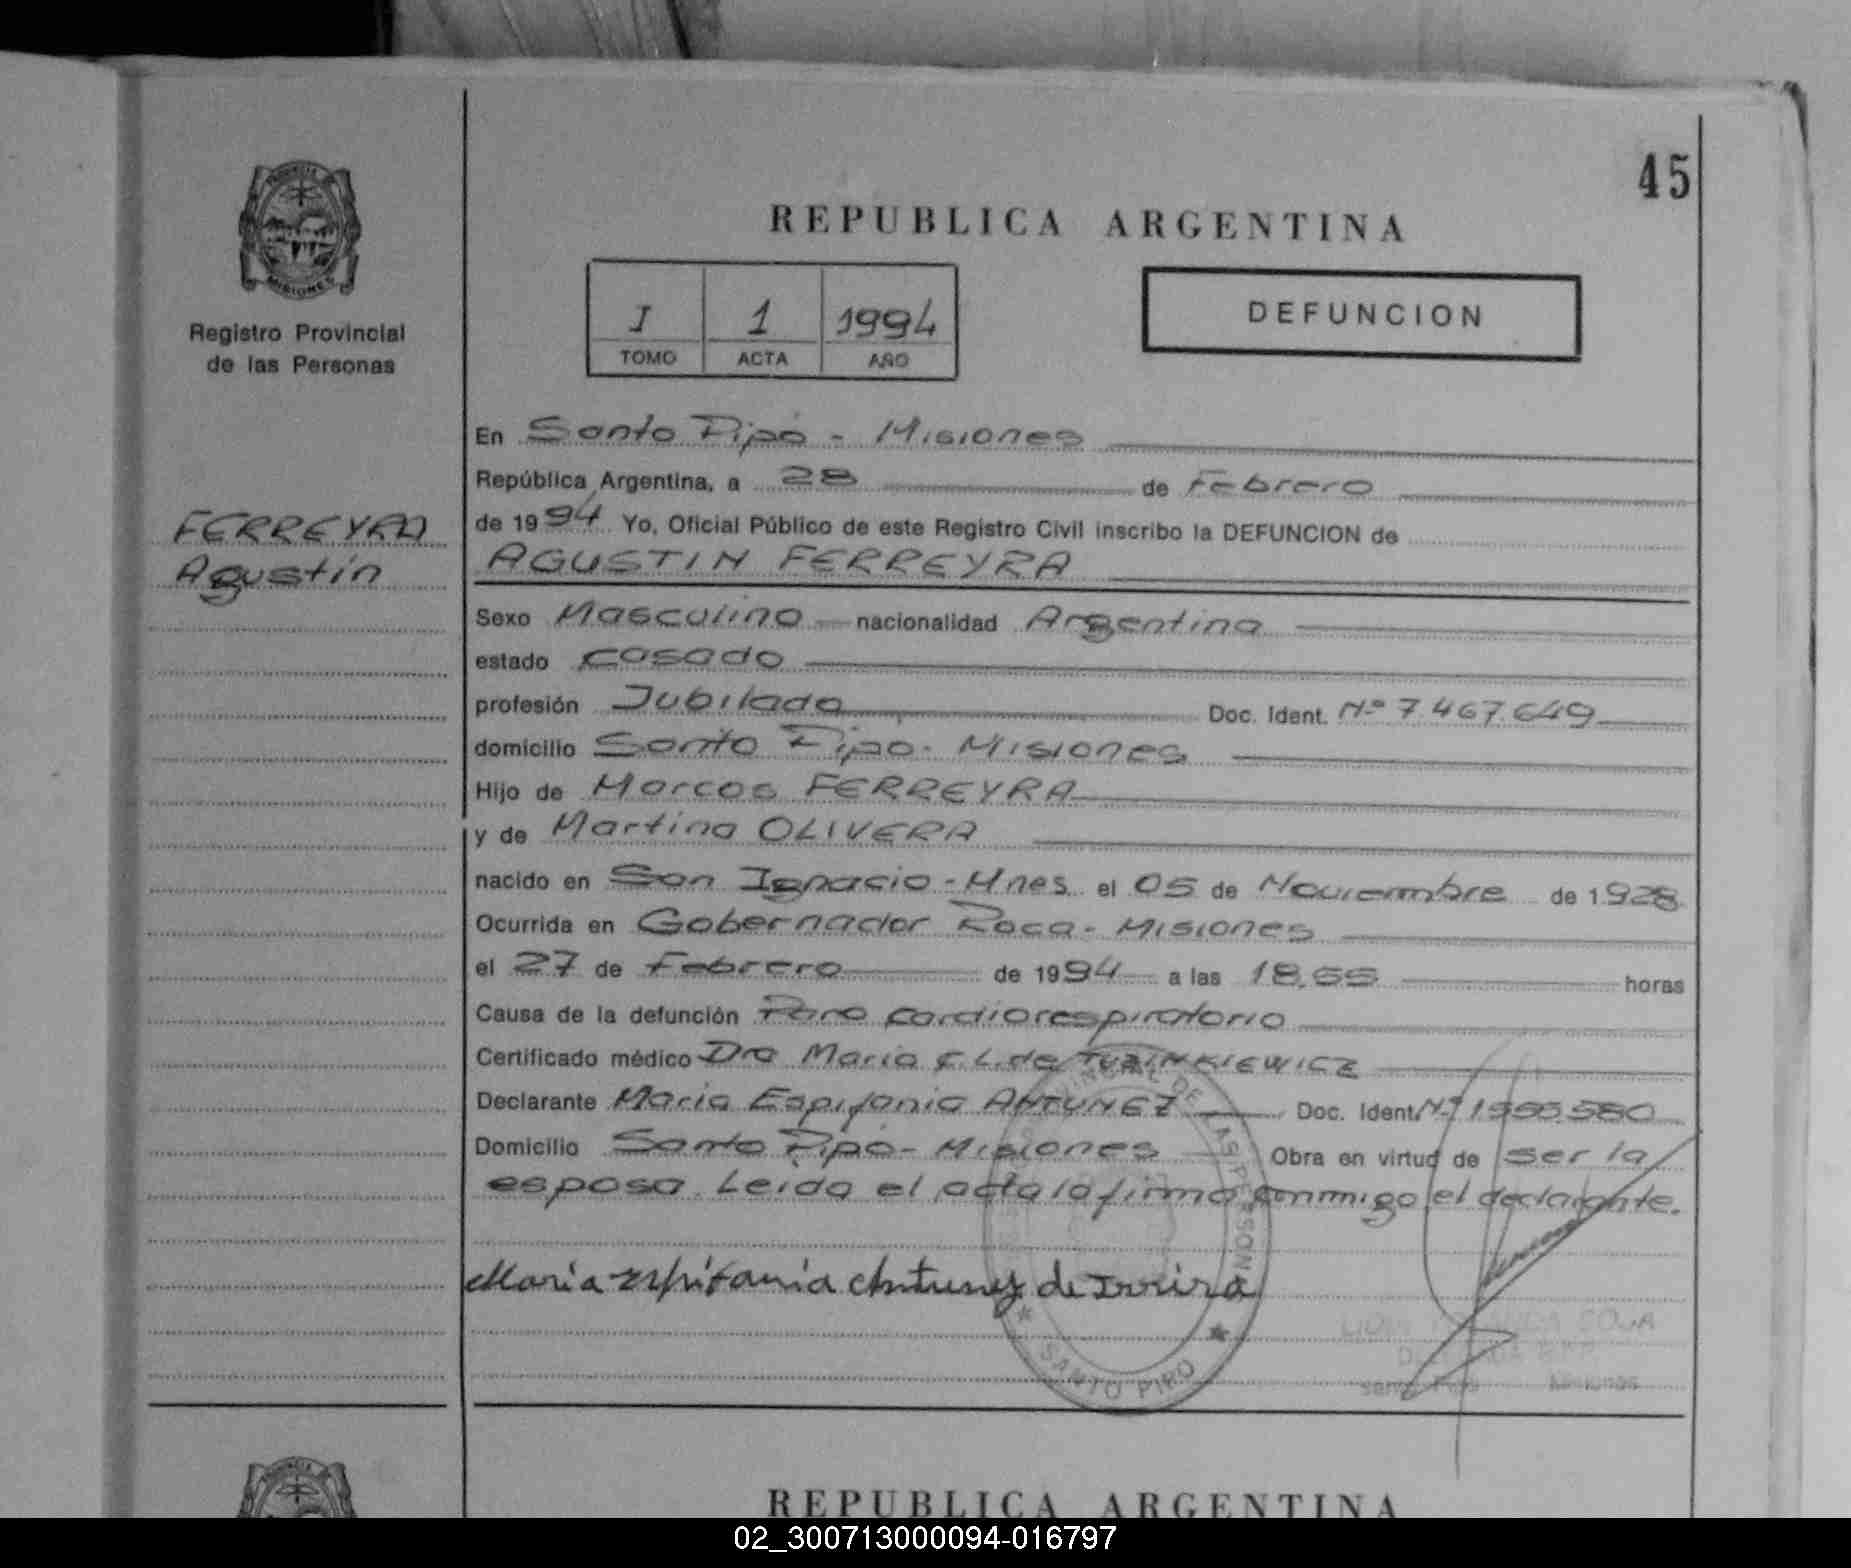 45
PROVINCIA DE
MISIONES
Registro Provincial
de las Personas
REPUBLICA ARGENTINA
I 1 1994
TOMO ACTA AÑO
DEFUNCION
FERREYRA
Agustín
En Santo Pipó - Misiones
República Argentina, a 28 de Febrero
de 1994 Yo, Oficial Público de este Registro Civil inscribo la DEFUNCION de
AGUSTIN FERREYRA
Sexo Masculino nacionalidad Argentina
estado casado
profesión Jubilado Doc. Ident. Nº 7.467.649
domicilio Santo Pipo - Misiones
Hijo de Marcos FERREYRA
y de Martina OLIVERA
nacido en San Ignacio - Mnes el 05 de Noviembre de 1928
Ocurrida en Gobernador Roca - Misiones
el 27 de Febrero de 1994 a las 18,55 horas
Causa de la defunción Paro cardiorespiratorio
Certificado médico Dra Maria E.L. de
Declarante Maria Espifania ANTUNEZ Doc. Ident. Nº 1.555.580
Domicilio Santo Pipó - Misiones Obra en virtud de ser la
esposa. Leida el acta la firma conmigo el declarante.
Maria Espifania Antunez de
SANTO PIPO
REPUBLICA ARGENTINA
02_300713000094-016797